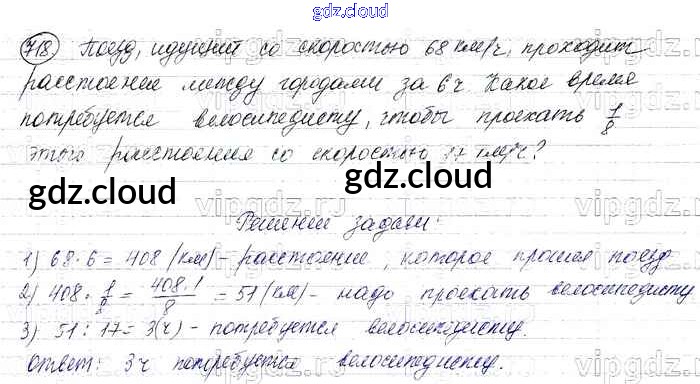 gdz.cloud
718. Поезд, идущий со скоростью 68 км/ч, проходит
расстояние между городами за 6ч. Какое время
потребуется велосипедисту, чтобы проехать 1/8
этого расстояния со скоростью 17 км/ч?
gdz.cloud gdz.cloud
Решение задачи:
1) 68·6 = 408 (км) - расстояние, которое прошел поезд
2) 408 · 1/8 = 408·1/8 = 51 (км) - надо проехать велосипедисту
3) 51 : 17 = 3(ч) - потребуется велосипедисту.
Ответ: 3ч потребуется велосипедисту.
gdz.cloud gdz.cloud